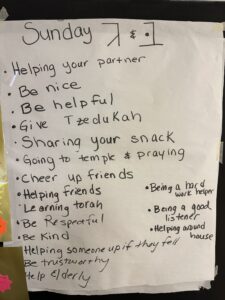 Sunday ג & ד
• Helping your partner
• Be nice
• Be helpful
• Give Tzedukah
• Sharing your snack
• Going to temple & praying
• Cheer up friends
• Helping friends
• Learning torah
• Be Respectful
• Be Kind
Helping someone up if they fell
Be trustworthy
Help elderly
• Being a hard work helper
• Being a good listener
• Helping around house